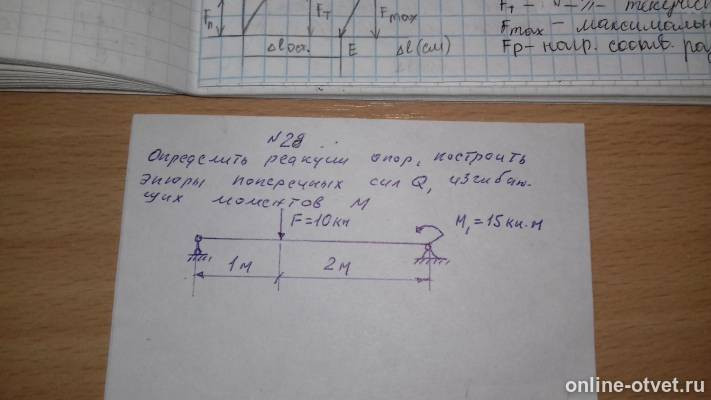 Fп
Fт
Fmax
Δlост.
E
Δl(см)
Fт -
Fmax - максимальн
Fр - напр. состав. раз
№28
Определить реакции опор, построить
эпюры поперечных сил Q, изгибаю-
щих моментов M
F=10кн
M₁=15кн·м
1м
2м
online-otvet.ru